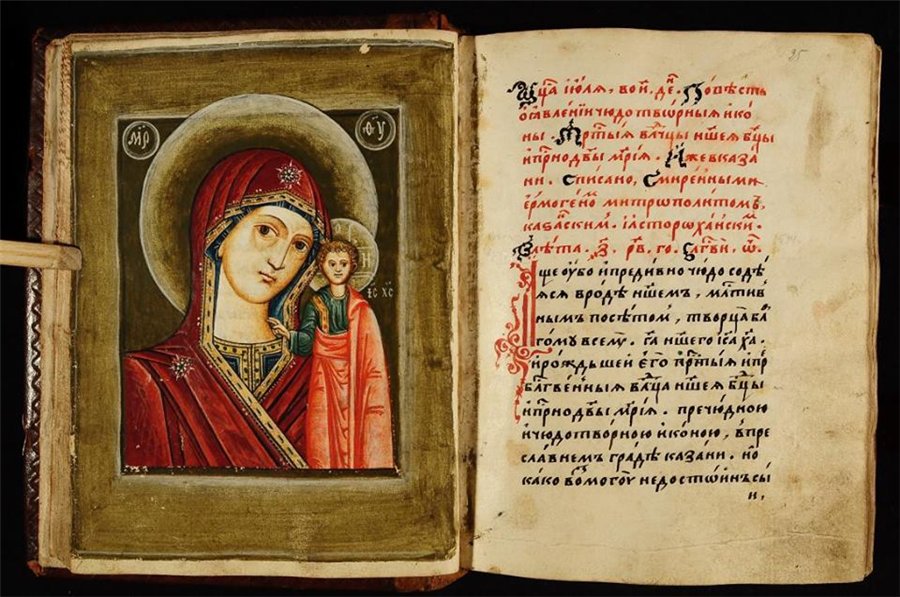 МР҃
Ѳ҃У
І҃С Х҃С
95
Мц҃а іюлѧ, во и҃. де҃. Повѣсть
ѡ ѧвленїи чюдотворныѧ ико
ны. Прт҃ыѧ влⷣцы нш҃еѧ бц҃ы
и приснодв҃ы мр҃іѧ. Иже в каза
ни. списано, Смиренными
ермогеномъ митрополитомъ,
казⷩ҇аскимъ. і асторохански.
лѣта. ҂з. рв. го.
ще оубо и предивно чюдо содѣ
ѧсѧ в родѣ нш҃емъ, млⷭ҇тив
нымъ посѣтомъ, творца бл҃
гому всемꙋ. га҃ нш҃его іс҃а ха҃.
и рождьшей его прⷱ҇тыѧ и пр҃
блг҃венныѧ влⷣца нш҃еѧ бц҃ы
и приснодв҃ы мр҃іѧ. пречюдною
и чюдотворною иконою, в пре
славнемъ градѣ казани. но
како возмогоу недостоинъ сы
и,